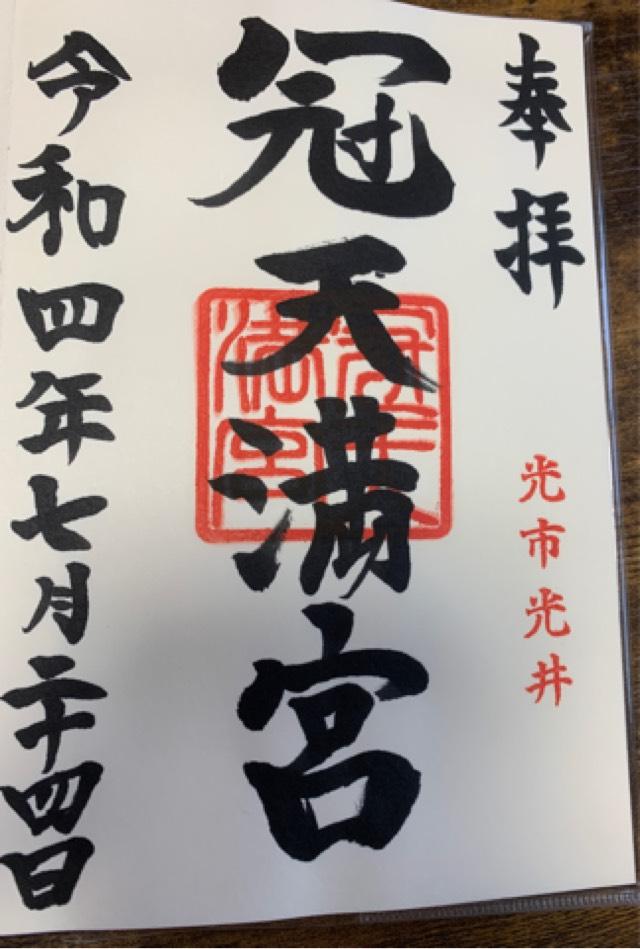 奉拝
光市光井
冠天満宮
令和四年七月二十四日